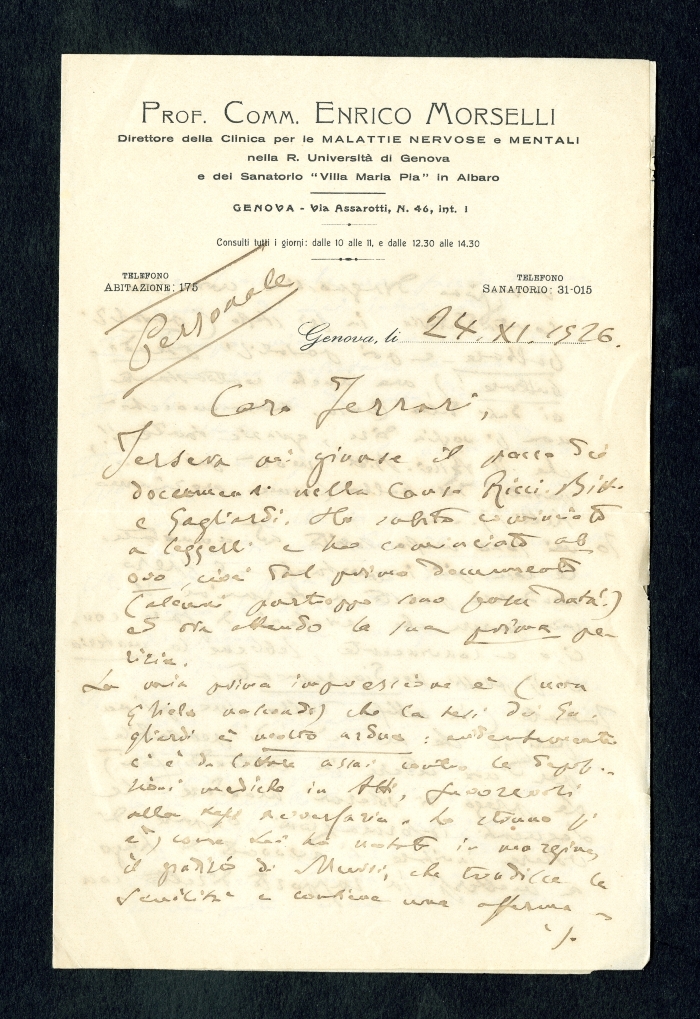 PROF. COMM. ENRICO MORSELLI
Direttore della Clinica per le MALATTIE NERVOSE e MENTALI
nella R. Università di Genova
e del Sanatorio "Villa Maria Pia" in Albaro
GENOVA - Via Assarotti, N. 46, int. 1
Consulti tutti i giorni: dalle 10 alle 11, e dalle 12.30 alle 14.30
TELEFONO
ABITAZIONE: 175
TELEFONO
SANATORIO: 31-015
Personale
Genova, li 24. XI. 1926.
Caro Ferrari,
Iersera mi giunse il pacco dei
documenti nella Causa Ricci
e Gagliardi. Ho subito cominciato
a leggerli e ho cominciato ab
ovo, cioè dal primo documento
(alcuni purtroppo sono senza data!)
ed ora attendo la sua prima pe
rizia.
La mia prima impressione è (non
glielo nascondo) che la tesi dei Ga-
gliardi è molto ardua: evidentemente
c'è da lottare assai contro le
medich in Atti, favorevoli
alla tesi avversaria.
è) come Lei ha notato in margine,
il giudizio di che
senilità e contiene una afferma-